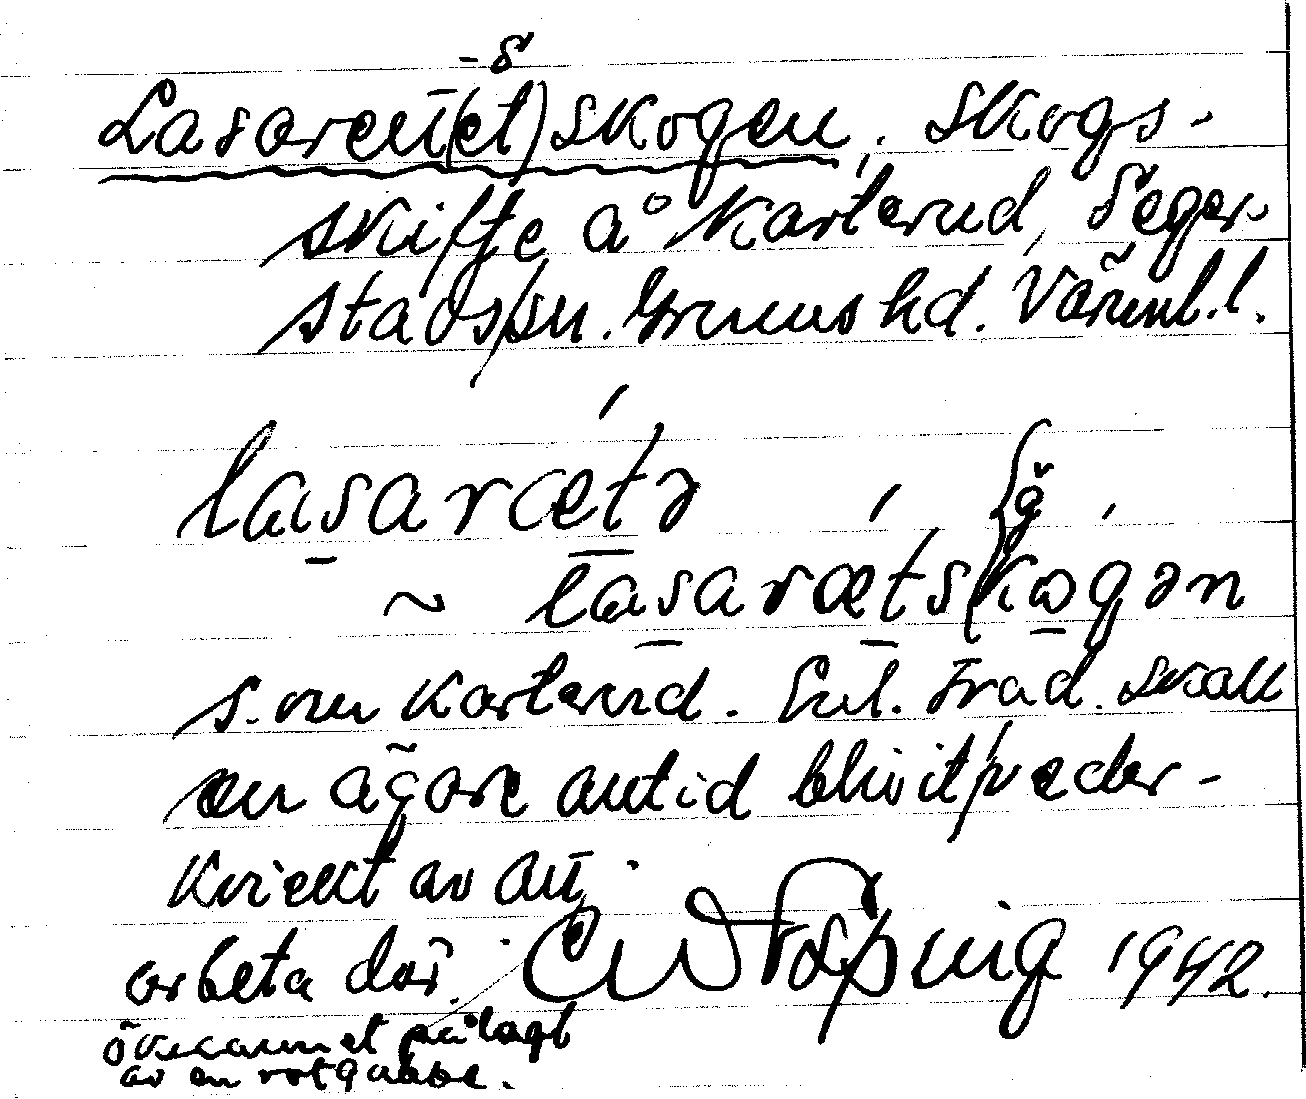 -s
Lasarett(et)skogen, skogs-
skifte å Karterud, Seger-
stads sn. Grums hd. Värml. l.
lasarætə
~ lasarætskogən
s. om Karterud. Enl. Trad. skall
en ägare antid blivit veder-
kvickt av att
arbeta där. 1942.
öknamnet pålagt
av en rotgubbe.